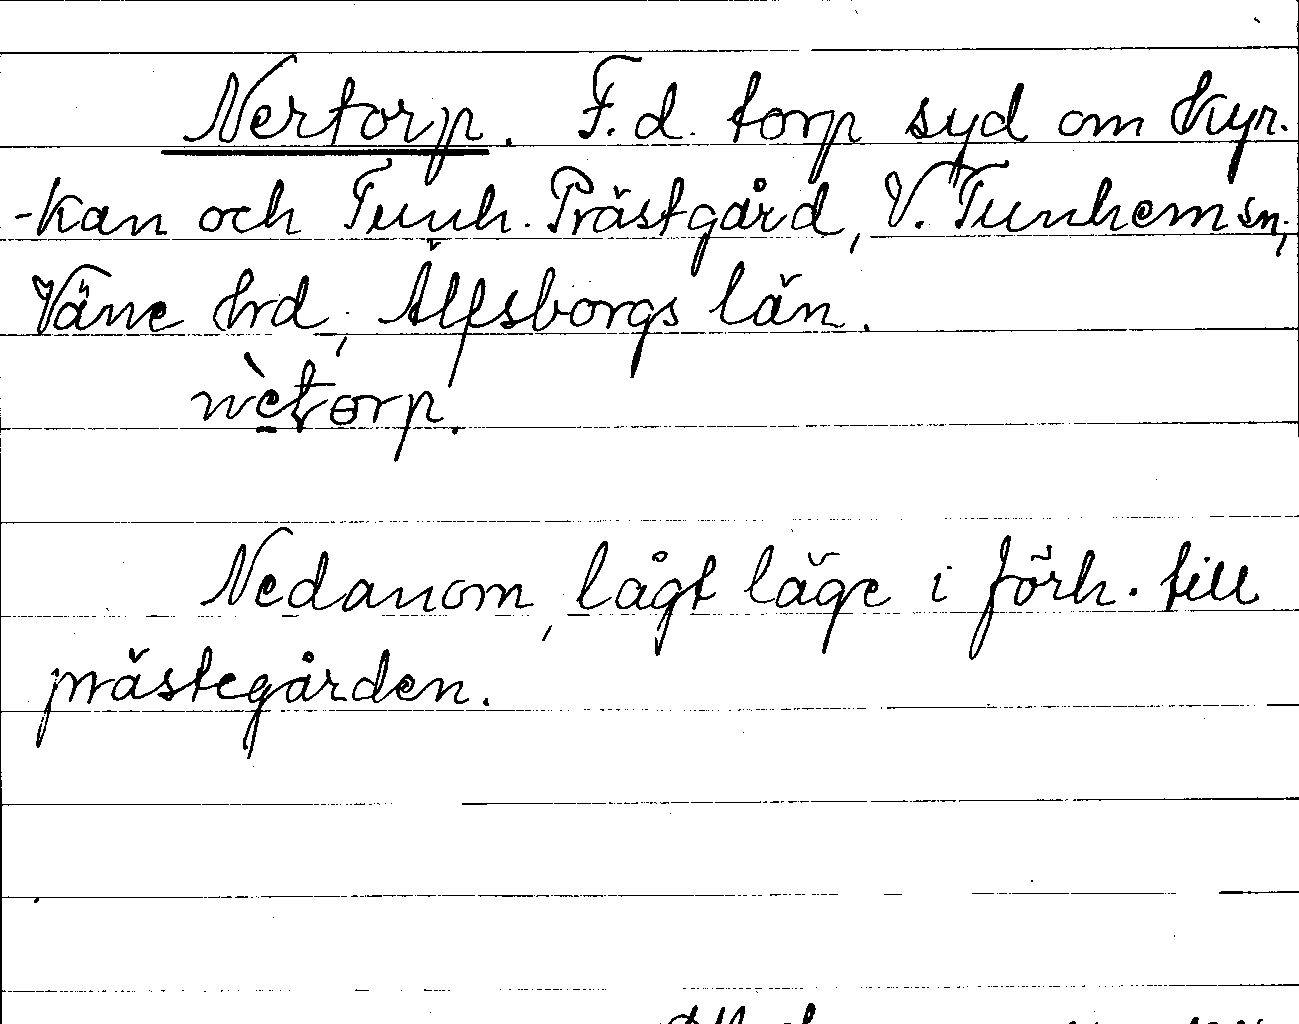 Nertorp. F.d. torp syd om Kyr-
-kan och Tunh. Prästgård, V. Tunhem sn;
Väne hrd, Älfsborgs län.
nètorp.
Nedanom, lågt läge i förh. till
prästegården.